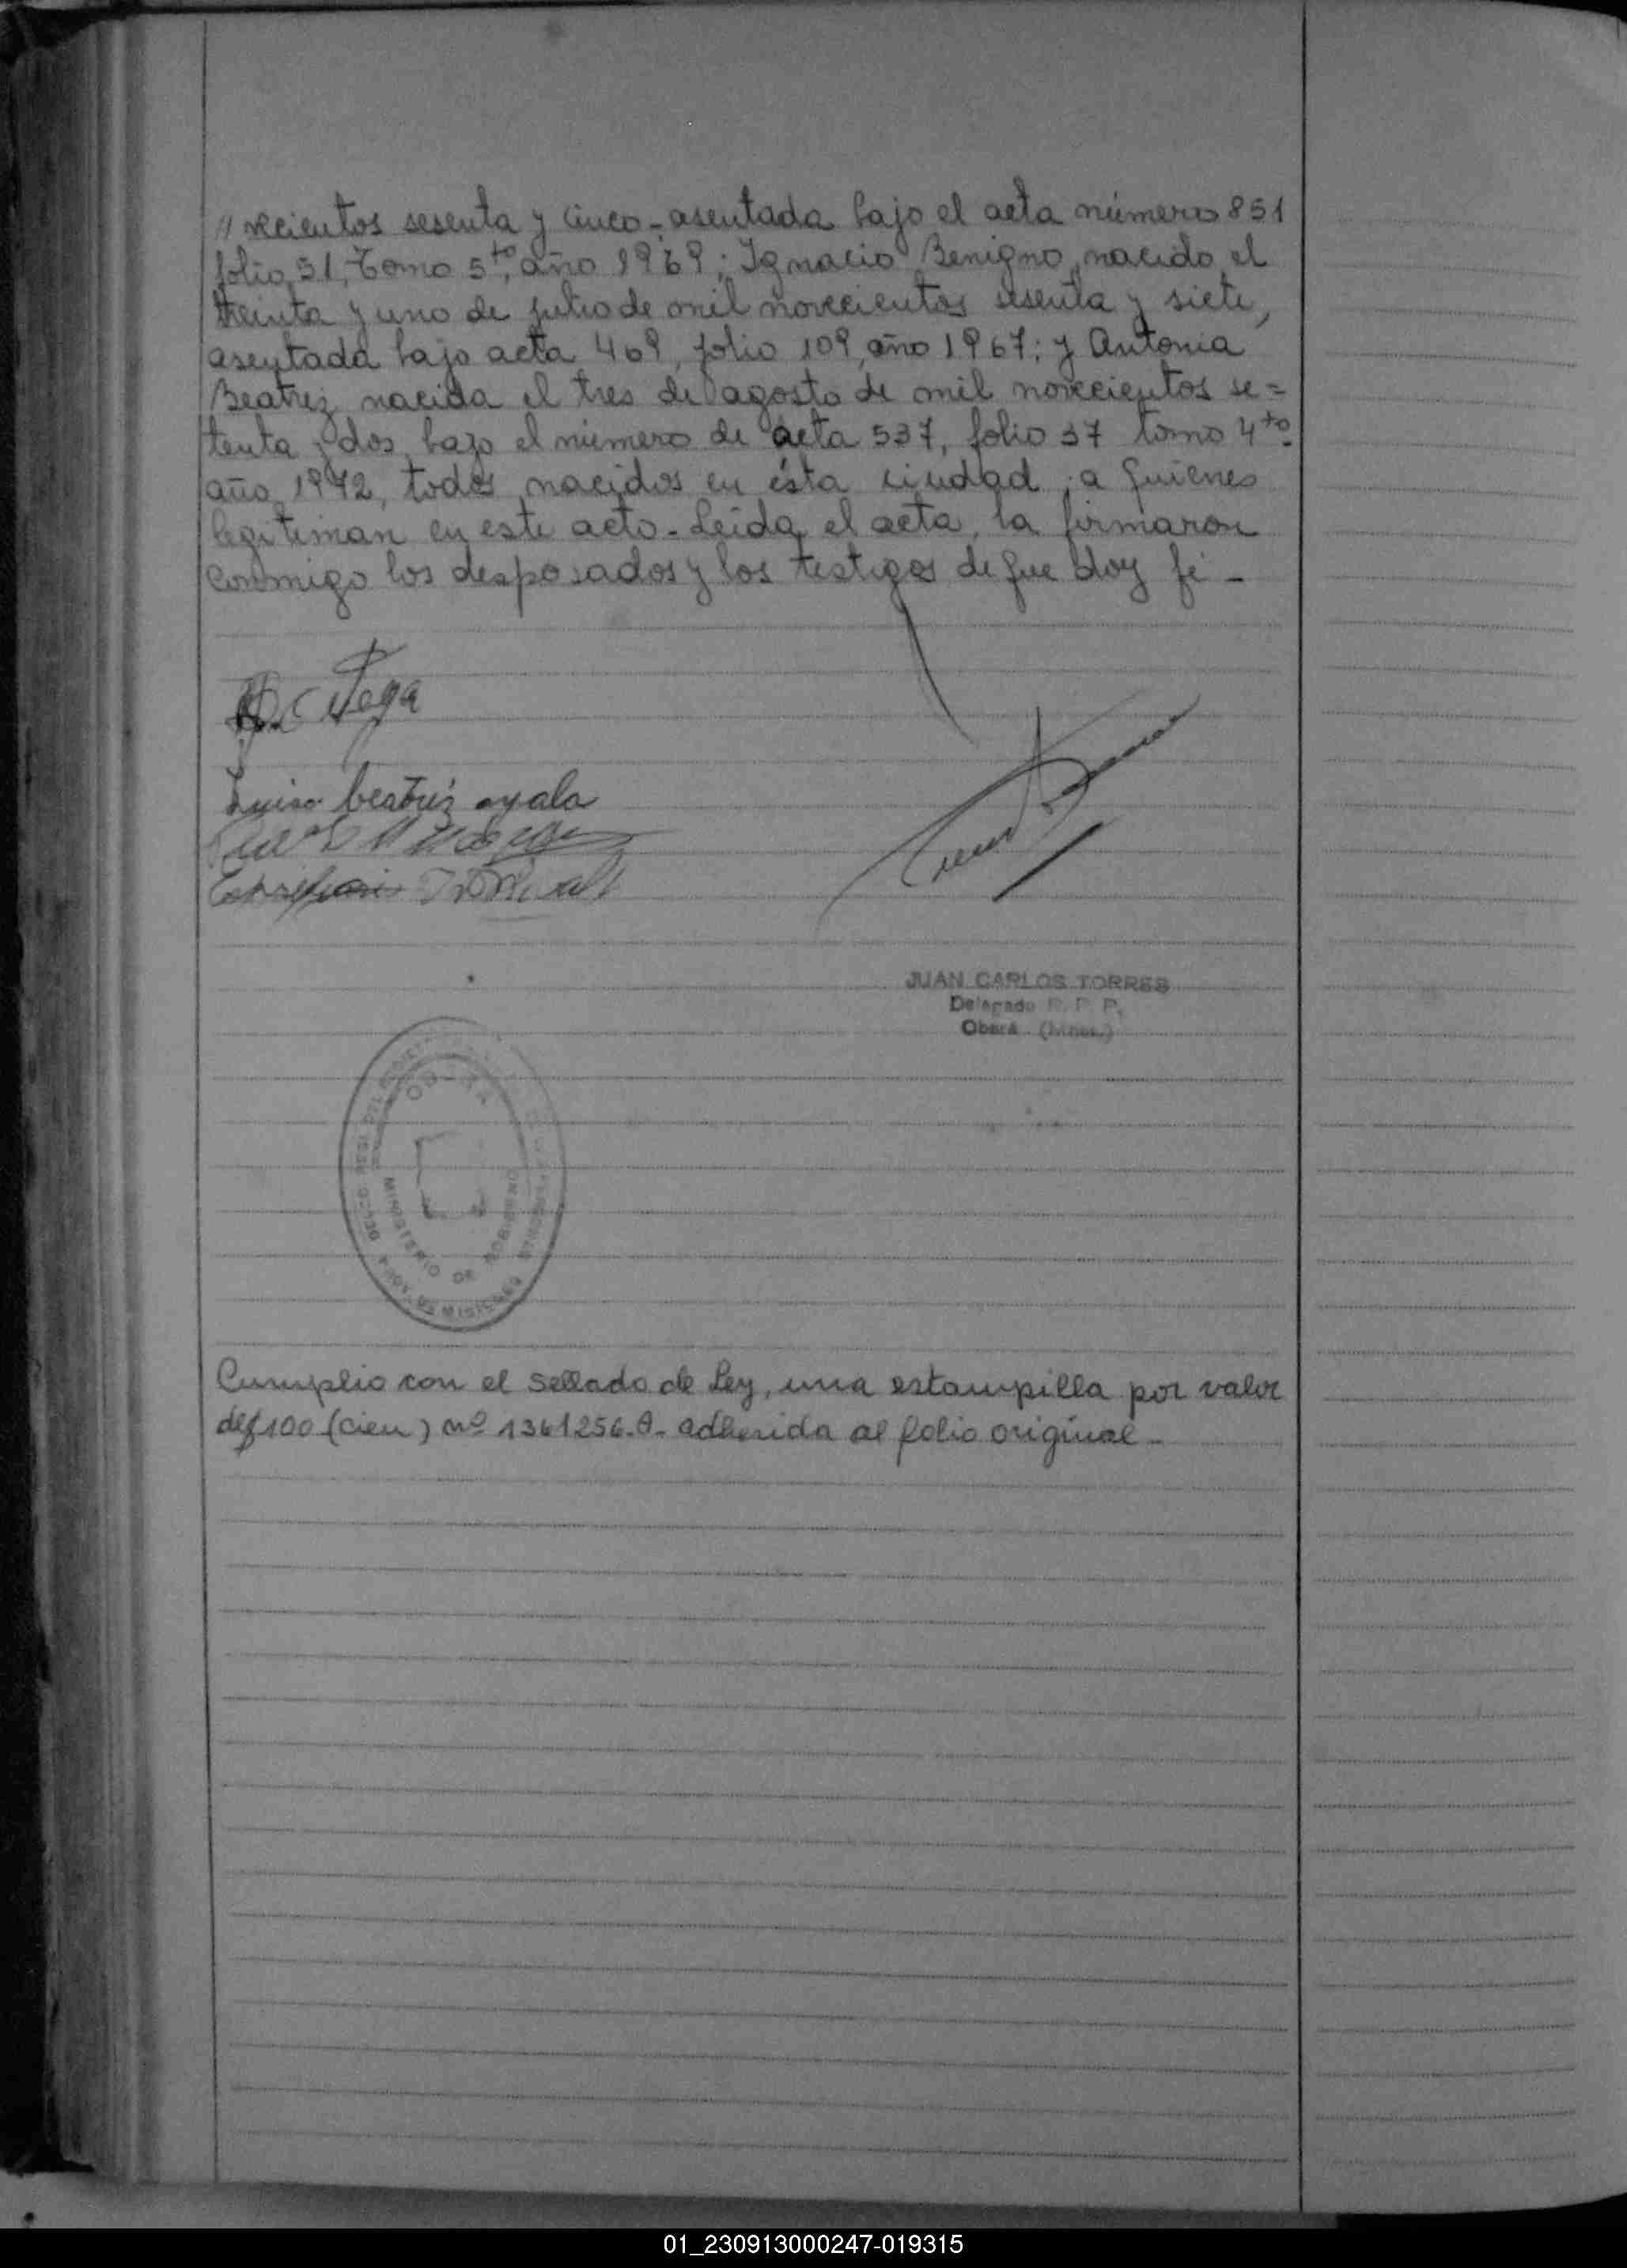 // vecientos sesenta y cinco - asentada bajo el acta número 851
folio 51, Tomo 5to, año 1969; Ignacio Benigno, nacido el
treinta y uno de julio de mil novecientos sesenta y siete,
asentada bajo acta 469, folio 109, año 1967; y Antonia
Beatriz nacida el tres de agosto de mil novecientos se=
tenta y dos, bajo el número de acta 537, folio 37 tomo 4to.
año 1972, todos nacidos en ésta ciudad, a quienes
legitiman en este acto - Leída el acta, la firmaron
conmigo los desposados y los testigos de que doy fé -
Vega
Luisa beatriz ayala
JUAN CARLOS TORRES
Delegado R. P. P.
Oberá (Mnes.)
OBERA
MINISTERIO DE GOBIERNO
MISIONES
Cumplio con el sellado de Ley, una estampilla por valor
de $ 100 (cien) nº 1361256-A- adherida al folio original -
01_230913000247-019315